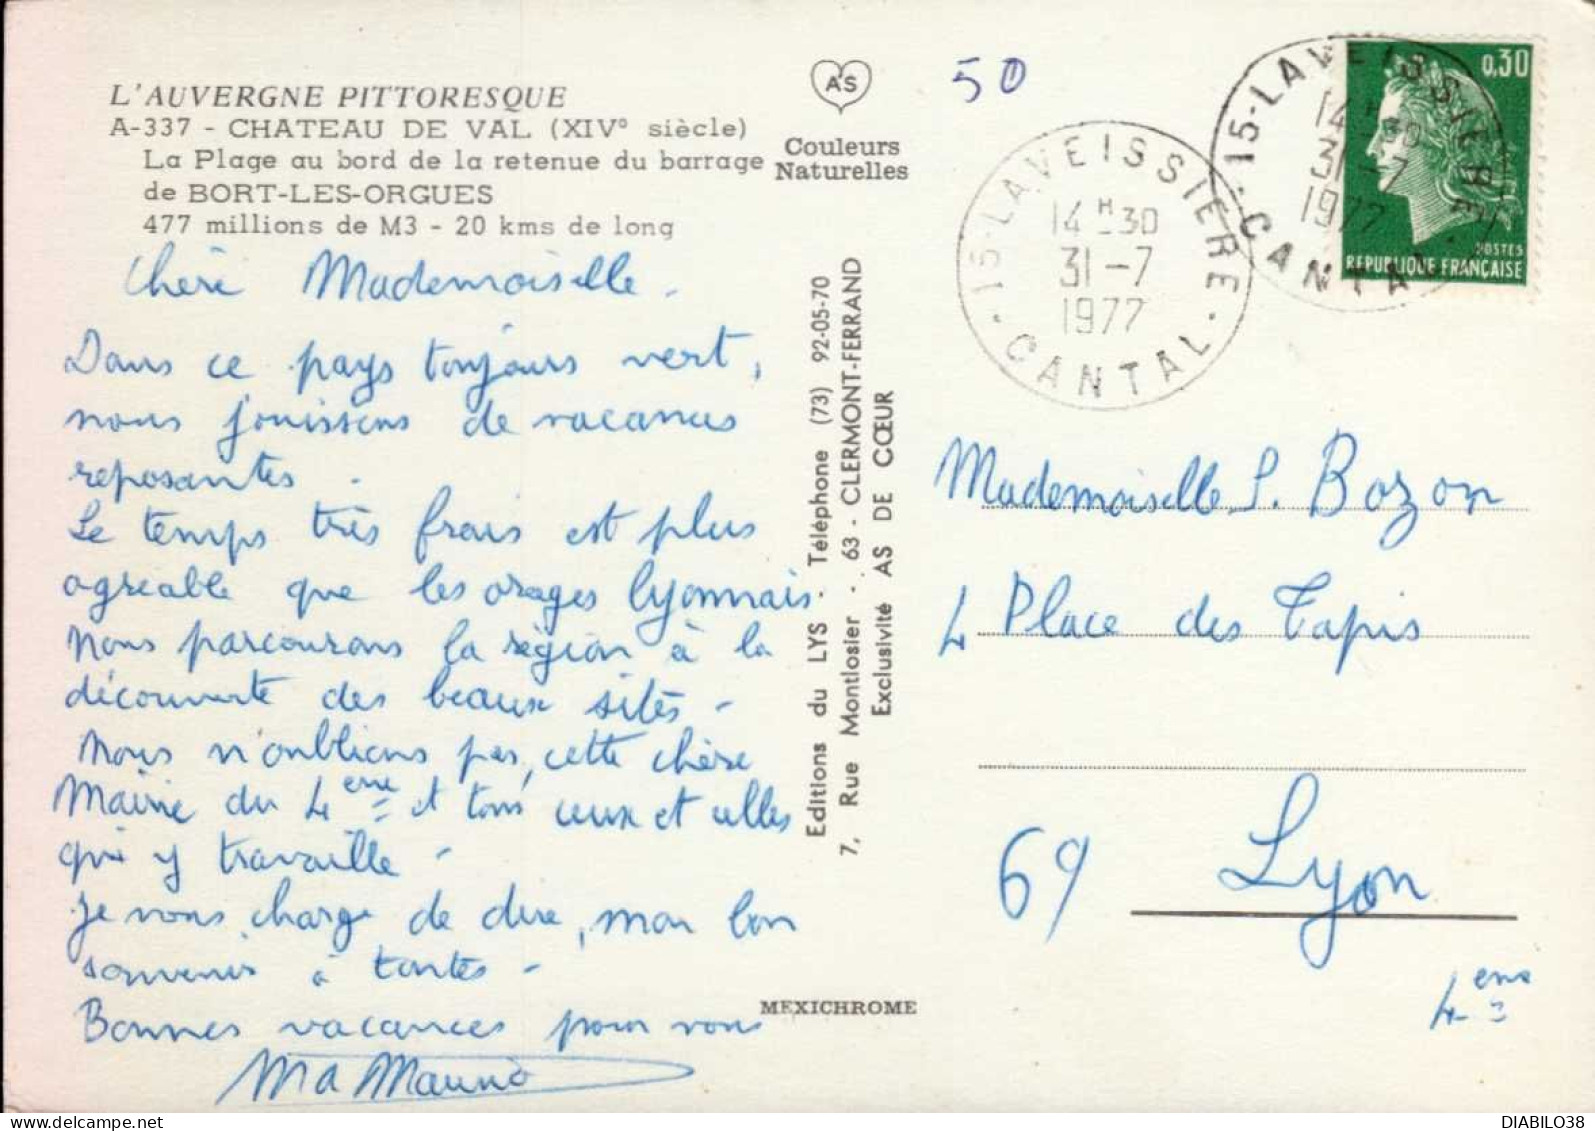 L'AUVERGNE PITTORESQUE
A-337 - CHATEAU DE VAL (XIV° siècle)
La Plage au bord de la retenue du barrage
de BORT-LES-ORGUES
477 millions de M3 - 20 kms de long
Chère Mademoiselle.
Dans ce pays toujours vert,
nous jouissons de vacances
reposantes.
Le temps très frais est plus
agréable que les orages lyonnais.
Nous parcourons la région à la
découverte des beaux sites -
Nous n'oublions pas, cette chère
Mairie du 4eme et tous ceux et celles
qui y travaille -
Je vous charge de dire, mon bon
souvenir à toutes -
Bonnes vacances pour vous
AS
Couleurs
Naturelles
Editions du LYS - Téléphone (73) 92-05-70
7, Rue Montlosier - 63 - CLERMONT-FERRAND
Exclusivité AS DE CŒUR
MEXICHROME
50
15-LAVEISSIERE
14H30
31-7
1977
CANTAL
15-LAVEISSIERE
14H30
31-7
1977
CANTAL
0,30
POSTES
REPUBLIQUE FRANÇAISE
Mademoiselle S. Bozon
4 Place des Tapis
69 Lyon
4eme
DIABILO38